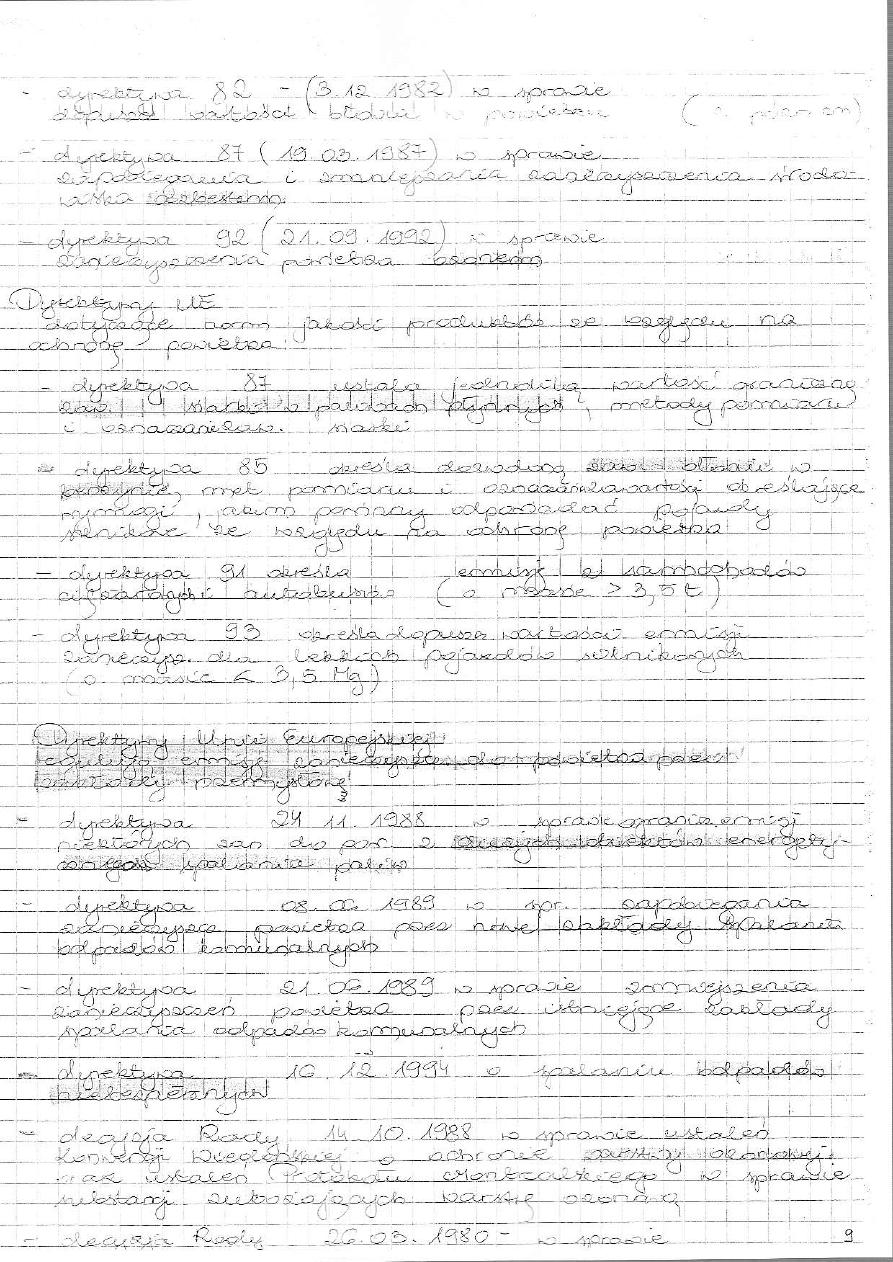 - dyrektywa 82 - (3.12.1982) w sprawie
wartości w powietrzu
- dyrektywa 87 (19.03.1987) w sprawie
zapobiegania i zmniejszania zanieczyszczenia środo-
wiska azbestem
- dyrektywa 92 (21.09.1992) w sprawie
zanieczyszczenia powietrza ozonem
Dyrektywy UE
dotyczące norm jakości produktów ze względu na
ochronę powietrza:
- dyrektywa 87 ustala jednolitą wartość graniczną
zaw. siarki w paliwach płynnych, metody pomiaru
i siarki
- dyrektywa 85 określa dozwoloną zaw. w
benzynie, met. pomiaru i określające
wymogi, jakim powinny odpowiadać pojazdy
silnikowe ze względu na ochronę powietrza
- dyrektywa 91 określa emisję z samochodów
ciężarowych i autobusów (o masie > 3,5 t)
- dyrektywa 93 określa dopuszcz. wartości emisji
zanieczysz. dla lekkich pojazdów silnikowych
(o masie < 3,5 Mg)
Dyrektywy Unii Europejskiej
regulują emisję zanieczyszcz. do powietrza przez
zakłady przemysłowe
- dyrektywa 24 11. 1988 w sprawie ogranicz. emisji
niektórych zan. do pow. z dużych obiektów energety-
cznego spalania paliw
- dyrektywa 1989 w spr. zapobiegania
zanieczyszcz. powietrza przez nowe zakłady spalania
odpadów komunalnych
- dyrektywa 21.06.1989 w sprawie zmniejszenia
zanieczyszczeń powietrza przez istniejące zakłady
spalania odpadów komunalnych
- dyrektywa 16 12 1994 o spalaniu odpadów
niebezpiecznych
- decyzja Rady 14.10.1988 w sprawie ustaleń
Konwencji Wiedeńskiej o ochronie warstwy ozonowej
oraz ustaleń Protokołu Montrealskiego w sprawie
substancji zubożających warstwę ozonową
- decyzja Rady 26.03.1980 - w sprawie
9